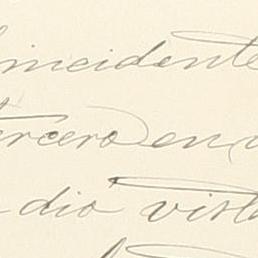 incidente
tercero en
dio vista